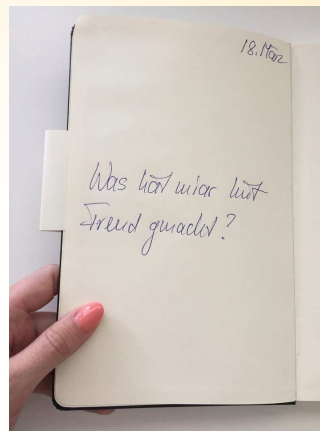 18. März
Was hät miar hüt
Freud gmacht?